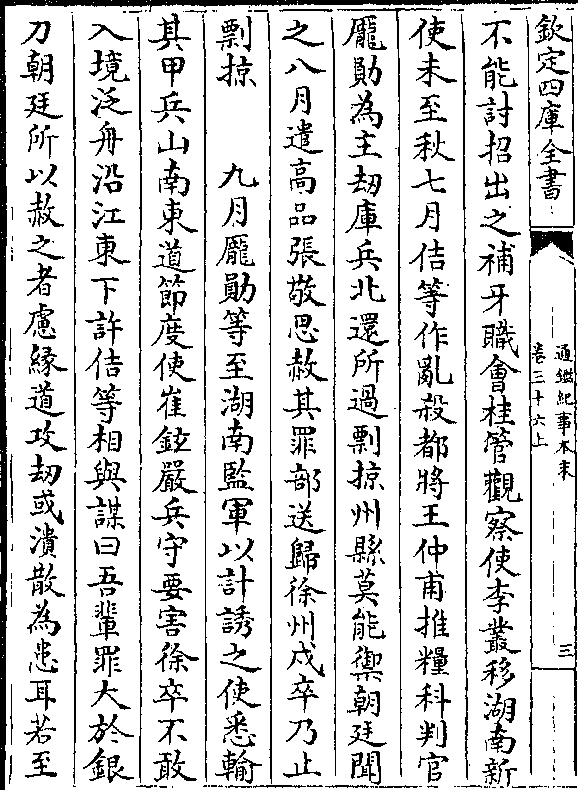 欽定四庫全書
通鑑紀事本末
卷三十六上
三
不能討招出之補牙職會桂管觀察使李叢移湖南新
使未至秋七月佶等作亂殺都將王仲甫推糧科判官
龎勛為主刼庫兵北還所過剽掠州縣莫能禦朝廷聞
之八月遣高品張敬思赦其罪部送歸徐州戍卒乃止
剽掠　九月龎勛等至湖南監軍以計誘之使悉輸
其甲兵山南東道節度使崔鉉嚴兵守要害徐卒不敢
入境泛舟沿江東下許佶等相與謀曰吾輩罪大於銀
刀朝廷所以赦之者慮緣道攻刼或潰散為患耳若至